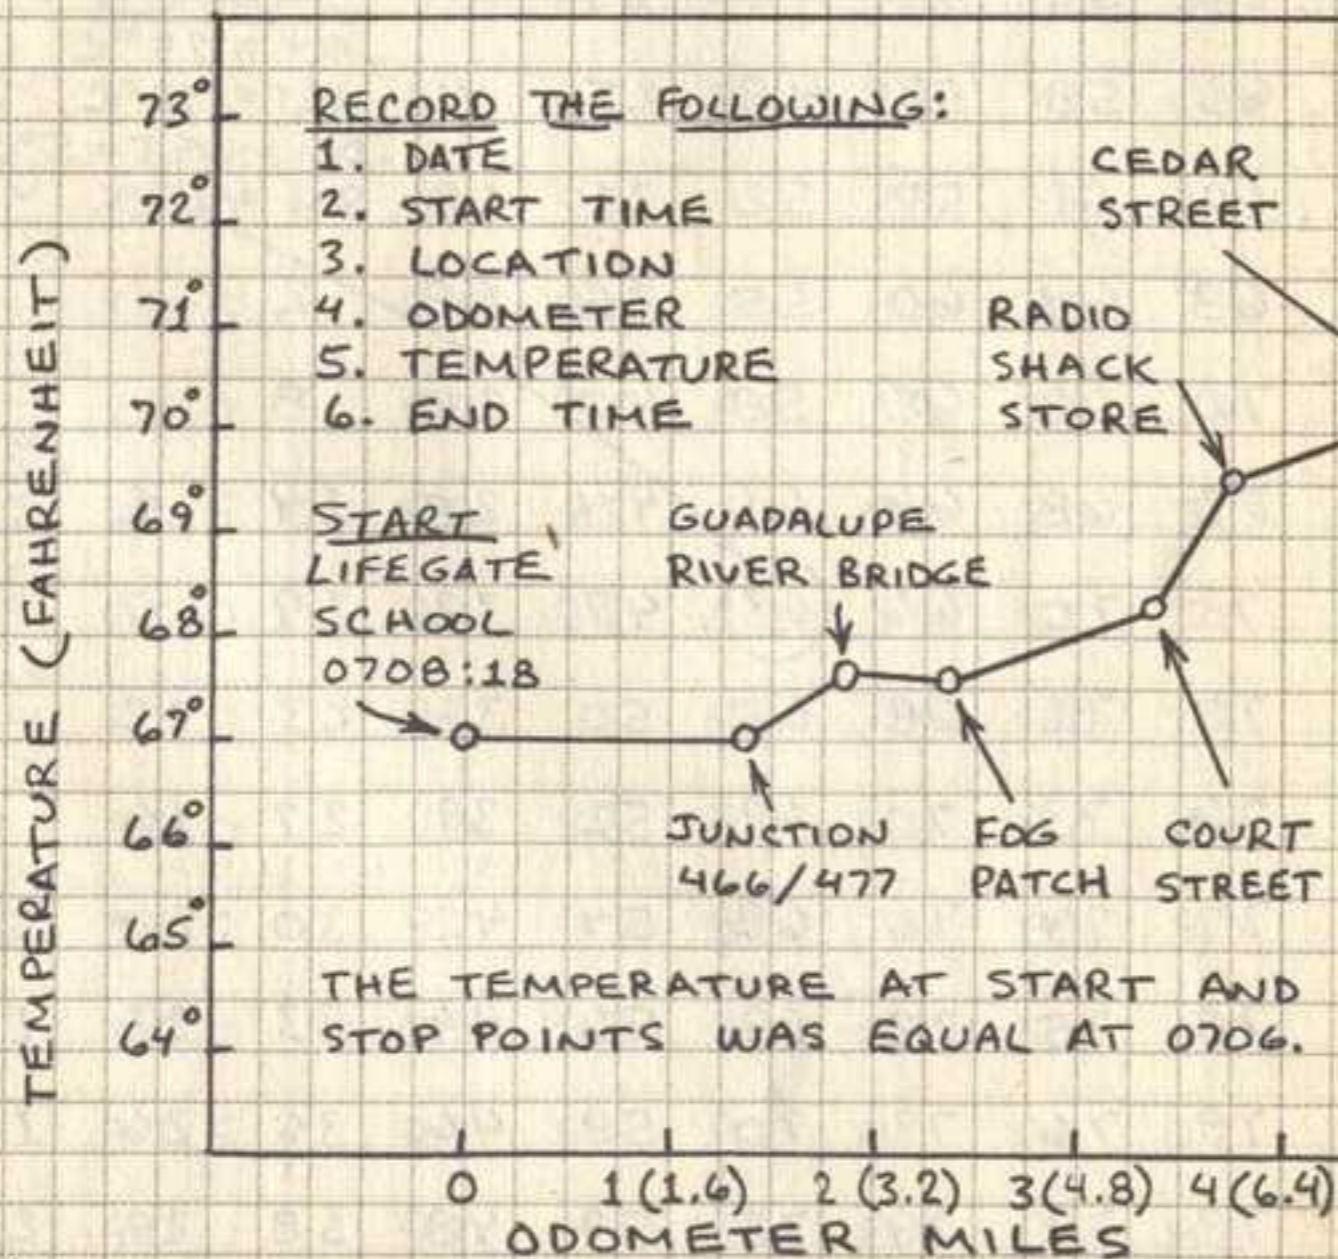 73°
72°
71°
70°
69°
68°
67°
66°
65°
64°
TEMPERATURE (FAHRENHEIT)
RECORD THE FOLLOWING:
1. DATE
2. START TIME
3. LOCATION
4. ODOMETER
5. TEMPERATURE
6. END TIME
CEDAR
STREET
RADIO
SHACK
STORE
START
LIFEGATE
SCHOOL
0708:18
GUADALUPE
RIVER BRIDGE
JUNCTION
466/477
FOG
PATCH
COURT
STREET
THE TEMPERATURE AT START AND
STOP POINTS WAS EQUAL AT 0706.
0 1(1.6) 2 (3.2) 3(4.8) 4(6.4)
ODOMETER MILES